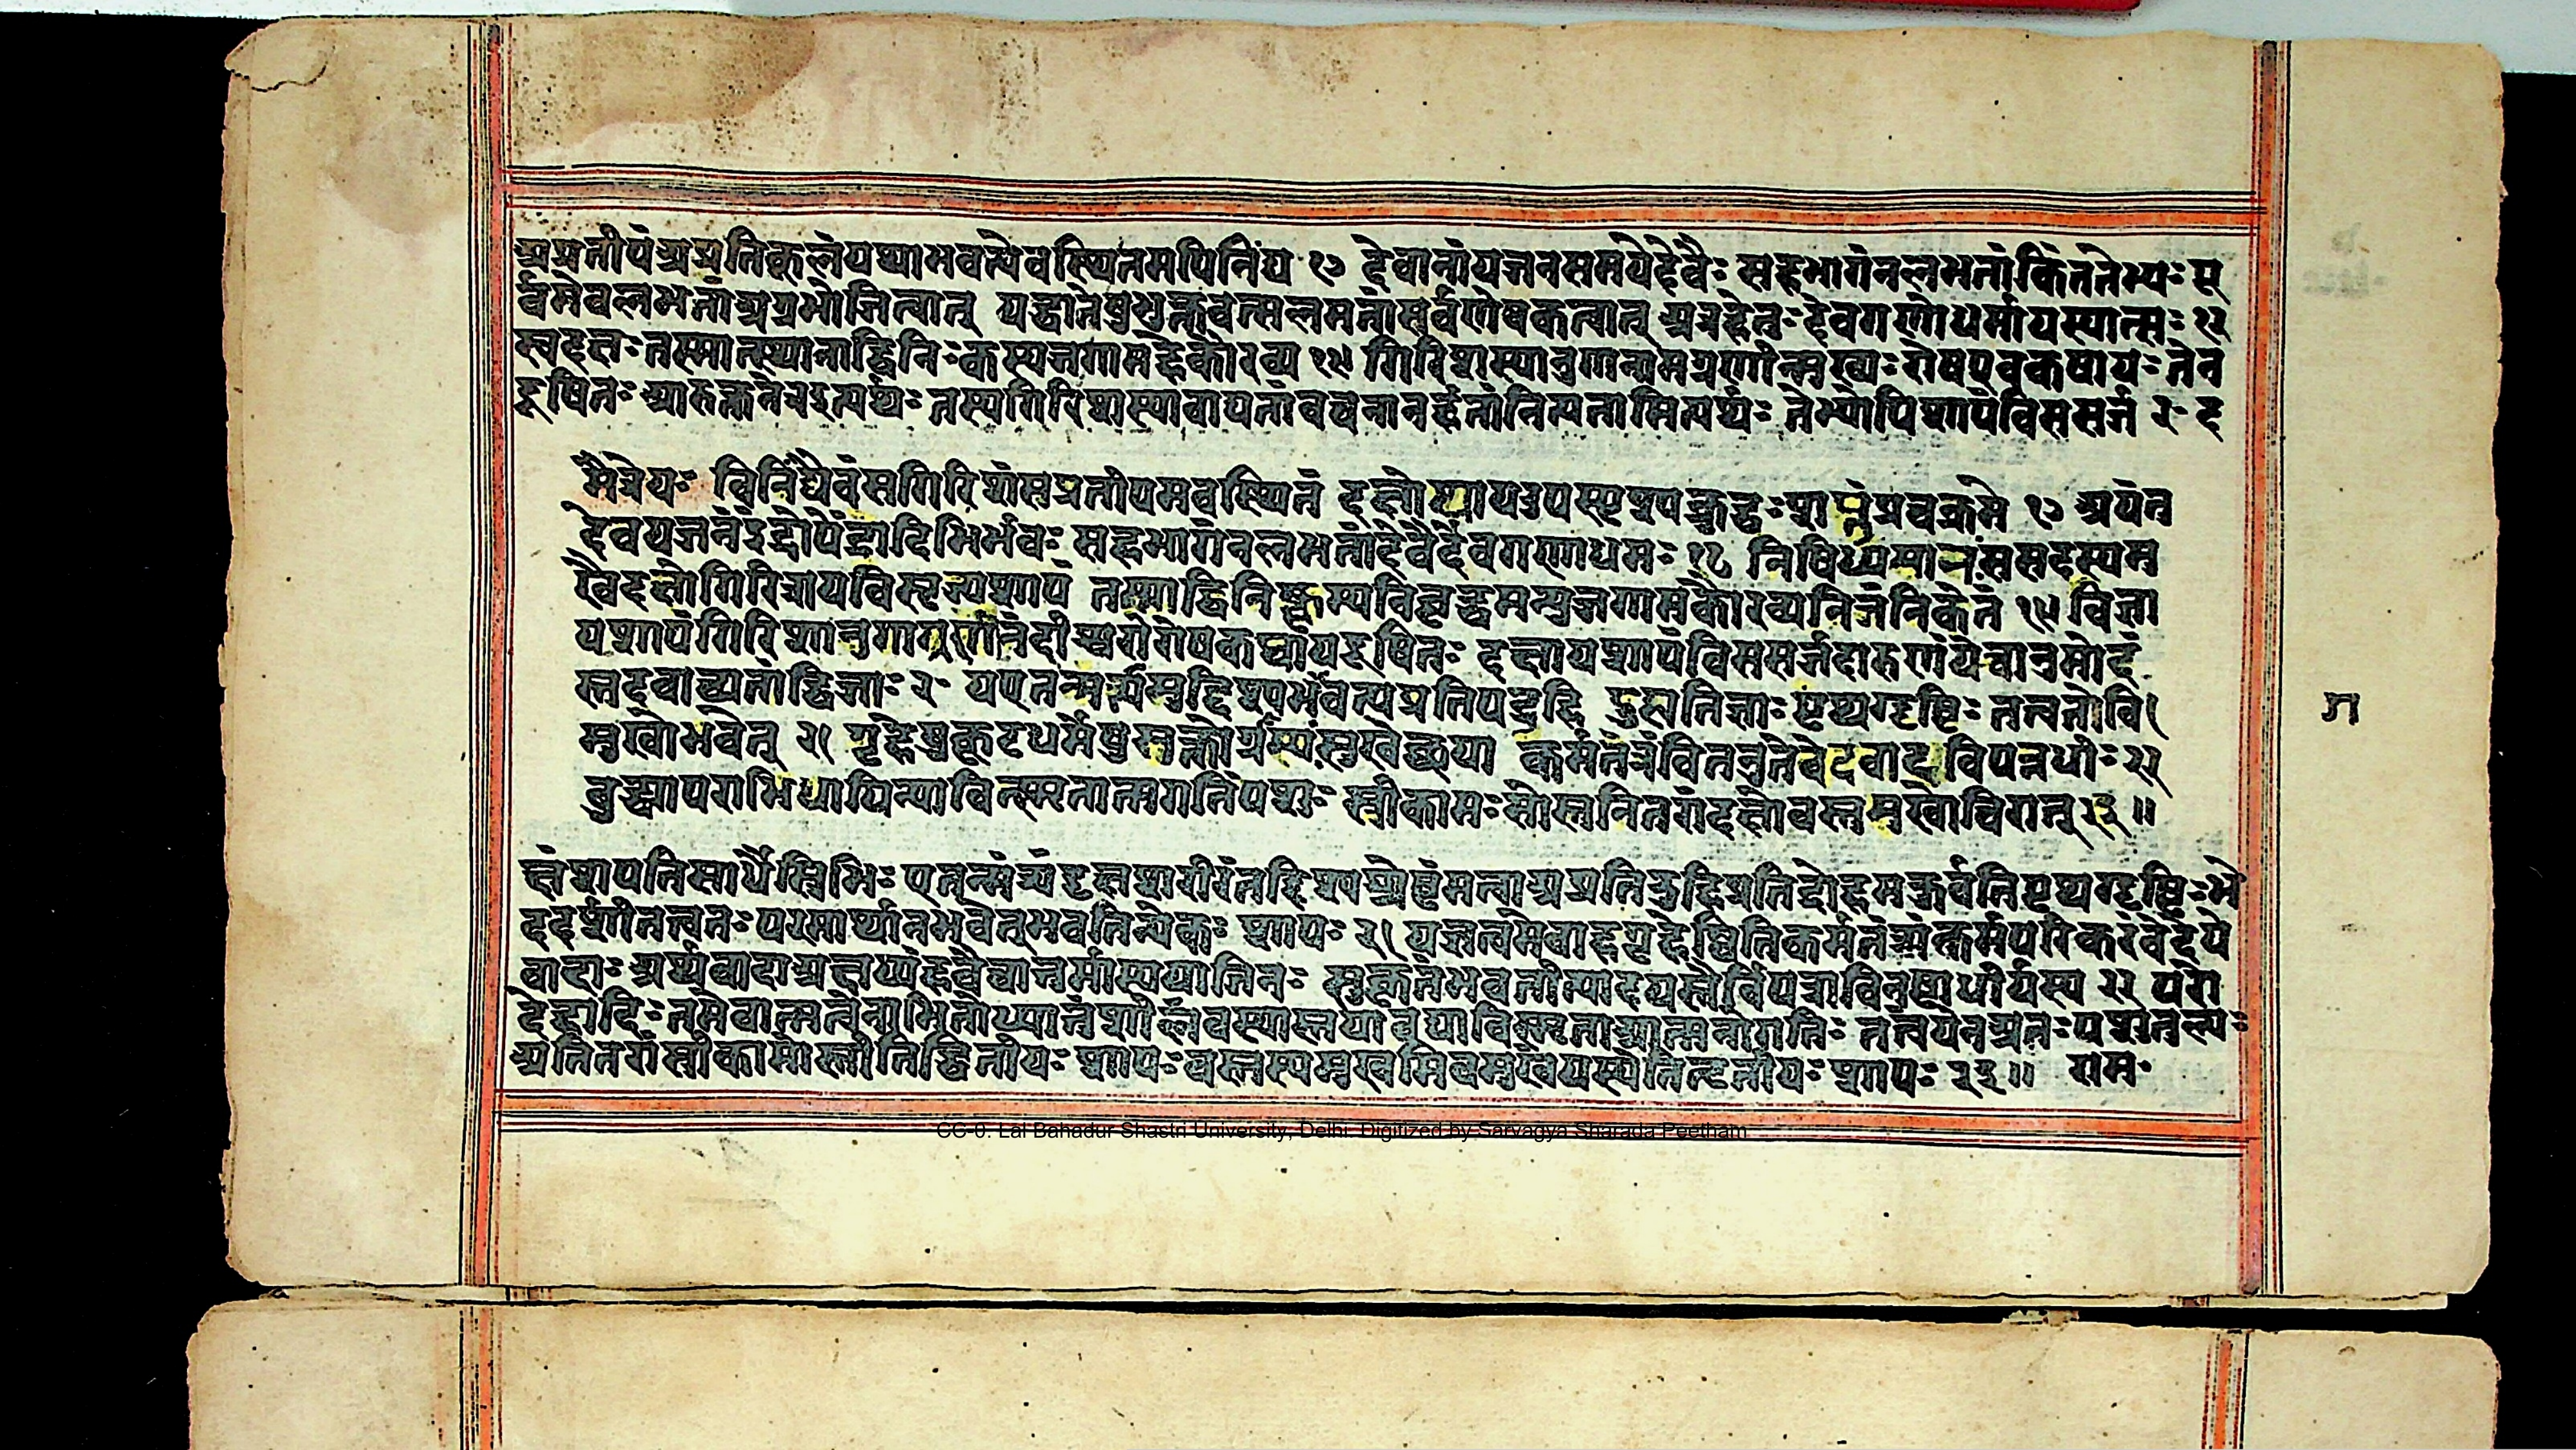 अप्रतीपंअप्रतिकूलंयथाभवत्येवंस्थितमपिनिंद्य १७ देवानांयजनसमयेदेवैः सहभागंनलभतांकिंतुतेभ्यः पू
र्वमेवलभतांअग्रभोजित्वात् यद्वातेषुभुक्तवत्सुलभतांसर्वशेषकत्वात् अत्रहेतुः देवगणाधमायस्यात्सः १८
दक्षः तस्मात्स्थानाद्विनिः क्रम्यजगामहेकौरव्य १९ गिरिशस्यानुगानामग्रणीर्मुख्यः रोषएवकषायः तेन
दूषितः आरक्तनेत्रइत्यर्थः तस्यगिरिशस्यावाच्यतां तेभ्योपिशापंविससर्ज २॰ द
मैत्रेयः विनिंद्यैवंसगिरिशंसप्रतीपमवस्थितं दक्षोथापउपस्पृश्यक्रुद्धः शप्तुंप्रचक्रमे १७ अयंतु
देवयजनइंद्रोपेंद्रादिभिर्भवः सहभागंनलभतांदेवैर्देवगणाधमः १८ निषिध्यमानः ससदस्यमु
ख्यैर्दक्षोगिरित्रायविसृज्यशापं तस्माद्विनिष्क्रम्यविवृद्धमन्युर्जगामकौरव्यनिजंनिकेतं १९ विज्ञा
यशापंगिरिशानुगाग्रणीर्नंदीश्वरोरोषकषायदूषितः दक्षायशापंविससर्जदारुणंयेचान्वमोदं
स्तदवाच्यतांद्विजाः २॰ यएतन्मर्त्यमुद्दिश्यभगवत्यप्रतिद्रुहि द्रुह्यतिज्ञः पृथग्दृष्टिः तत्वतोवि
मुखोभवेत् २१ गृहेषुकूटधर्मेषुसक्तोग्राम्यसुखेच्छया कर्मतंत्रंवितनुतेवेदवादविपन्नधीः २२
बुद्ध्यापराभिध्यायिन्याविस्मृतात्मगतिः पशुः स्त्रीकामः सोस्त्वतितरांदक्षोबस्तमुखोचिरात् २३॥
क्षंशपतिसार्धैस्त्रिभिः एतन्मर्त्यंदक्षशरीरं श्रेष्ठंमत्वाअप्रतिद्रुहिप्रतिद्रोहमकुर्वतिपृथग्दृष्टिः भे
ददर्शीतत्वतः परमार्थान्नभवेत्भवत्वित्येकः शापः २१ गृहेष्वितिकर्मतंत्रंकर्मपरिकरंवेदेये
वादाः अर्थवादाअक्षय्यंहवैचातुर्मास्ययाजिनः सुकृतंभवतीत्यादयस्तैर्विपन्नाविनष्टाधीर्यस्य २२ परो
देहादिः तमेवात्मत्वेनाभितोध्यातुंशीलंयस्यास्तयाबुध्याविस्मृताआत्मनोगतिः तत्वंयेनअतः पशुतुल्यः
अतितरांस्त्रीकामोस्त्वितिद्वितीयः शापः बस्तस्यमुखमिवमुखंयस्येतितृतीयः शापः २३॥ राम॰
ग
CC-0. Lal Bahadur Shastri University, Delhi. Digitized by Sarvagya Sharada Peetham